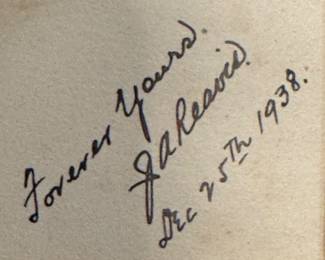 Forever Yours.
J A Reavis.
Dec 25th 1938.